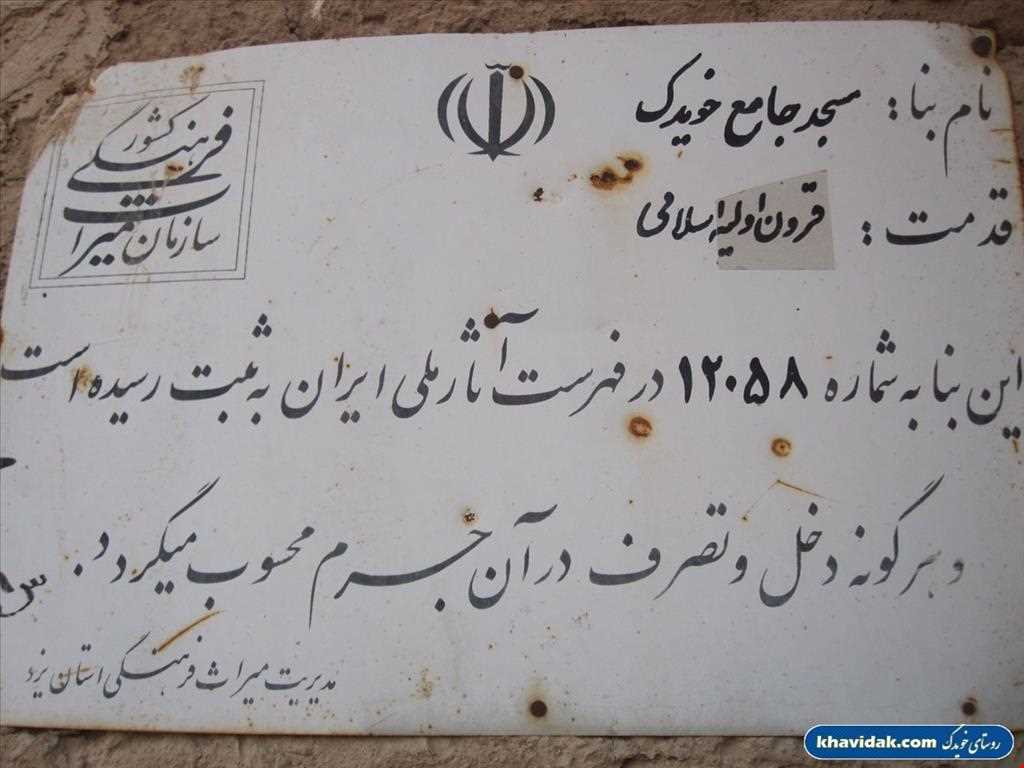 نام بنا : مسجد جامع خویدک
قدمت : قرون اولیه اسلامی
سازمان میراث فرهنگی کشور
این بنا به شماره ۱۲۰۵۸ در فهرست آثار ملی ایران به ثبت رسیده است
و هرگونه دخل و تصرف در آن جرم محسوب میگردد.
مدیریت میراث فرهنگی استان یزد
روستای خویدک khavidak.com